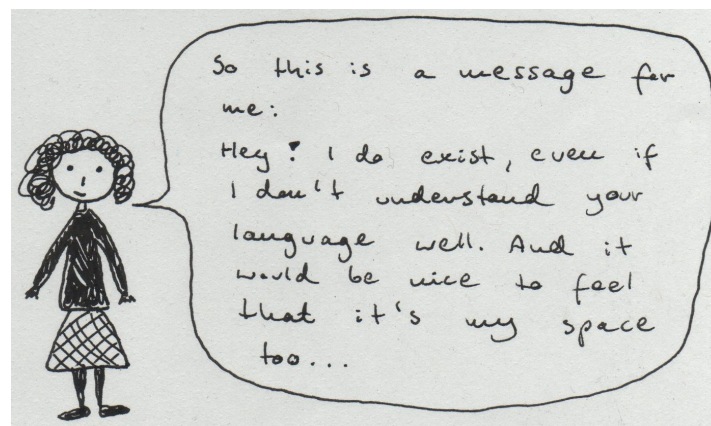 So this is a message for
me:
Hey! I do exist, even if
I don't understand your
language well. And it
would be nice to feel
that it's my space
too...